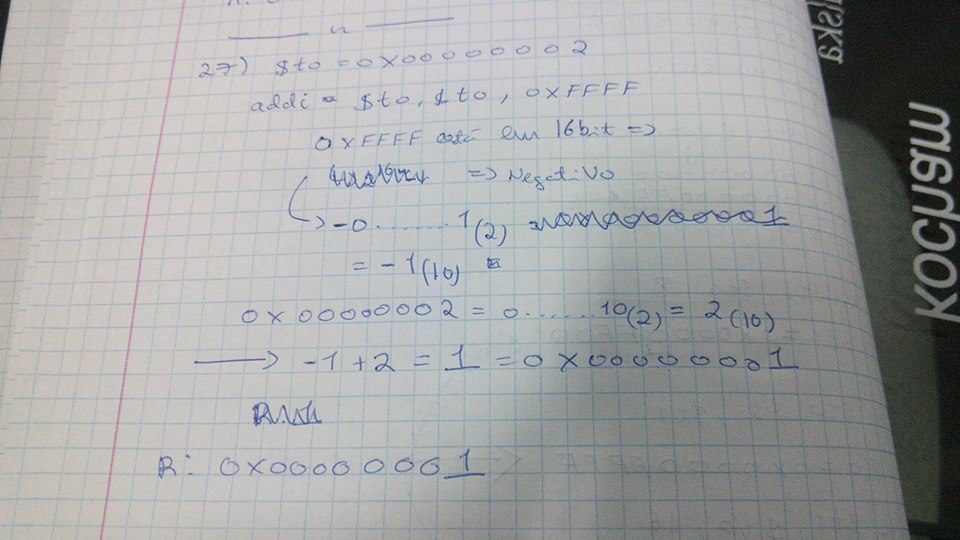 27) $t0 = 0x00000002
addi $t0, $t0, 0xFFFF
0xFFFF está em 16bit =>
=> Negativo
-> -0........1(2)
= -1(10)
0x00000002 = 0......10(2) = 2(10)
-> -1+2 = 1 = 0x00000001
R: 0x00000001
космем
iska